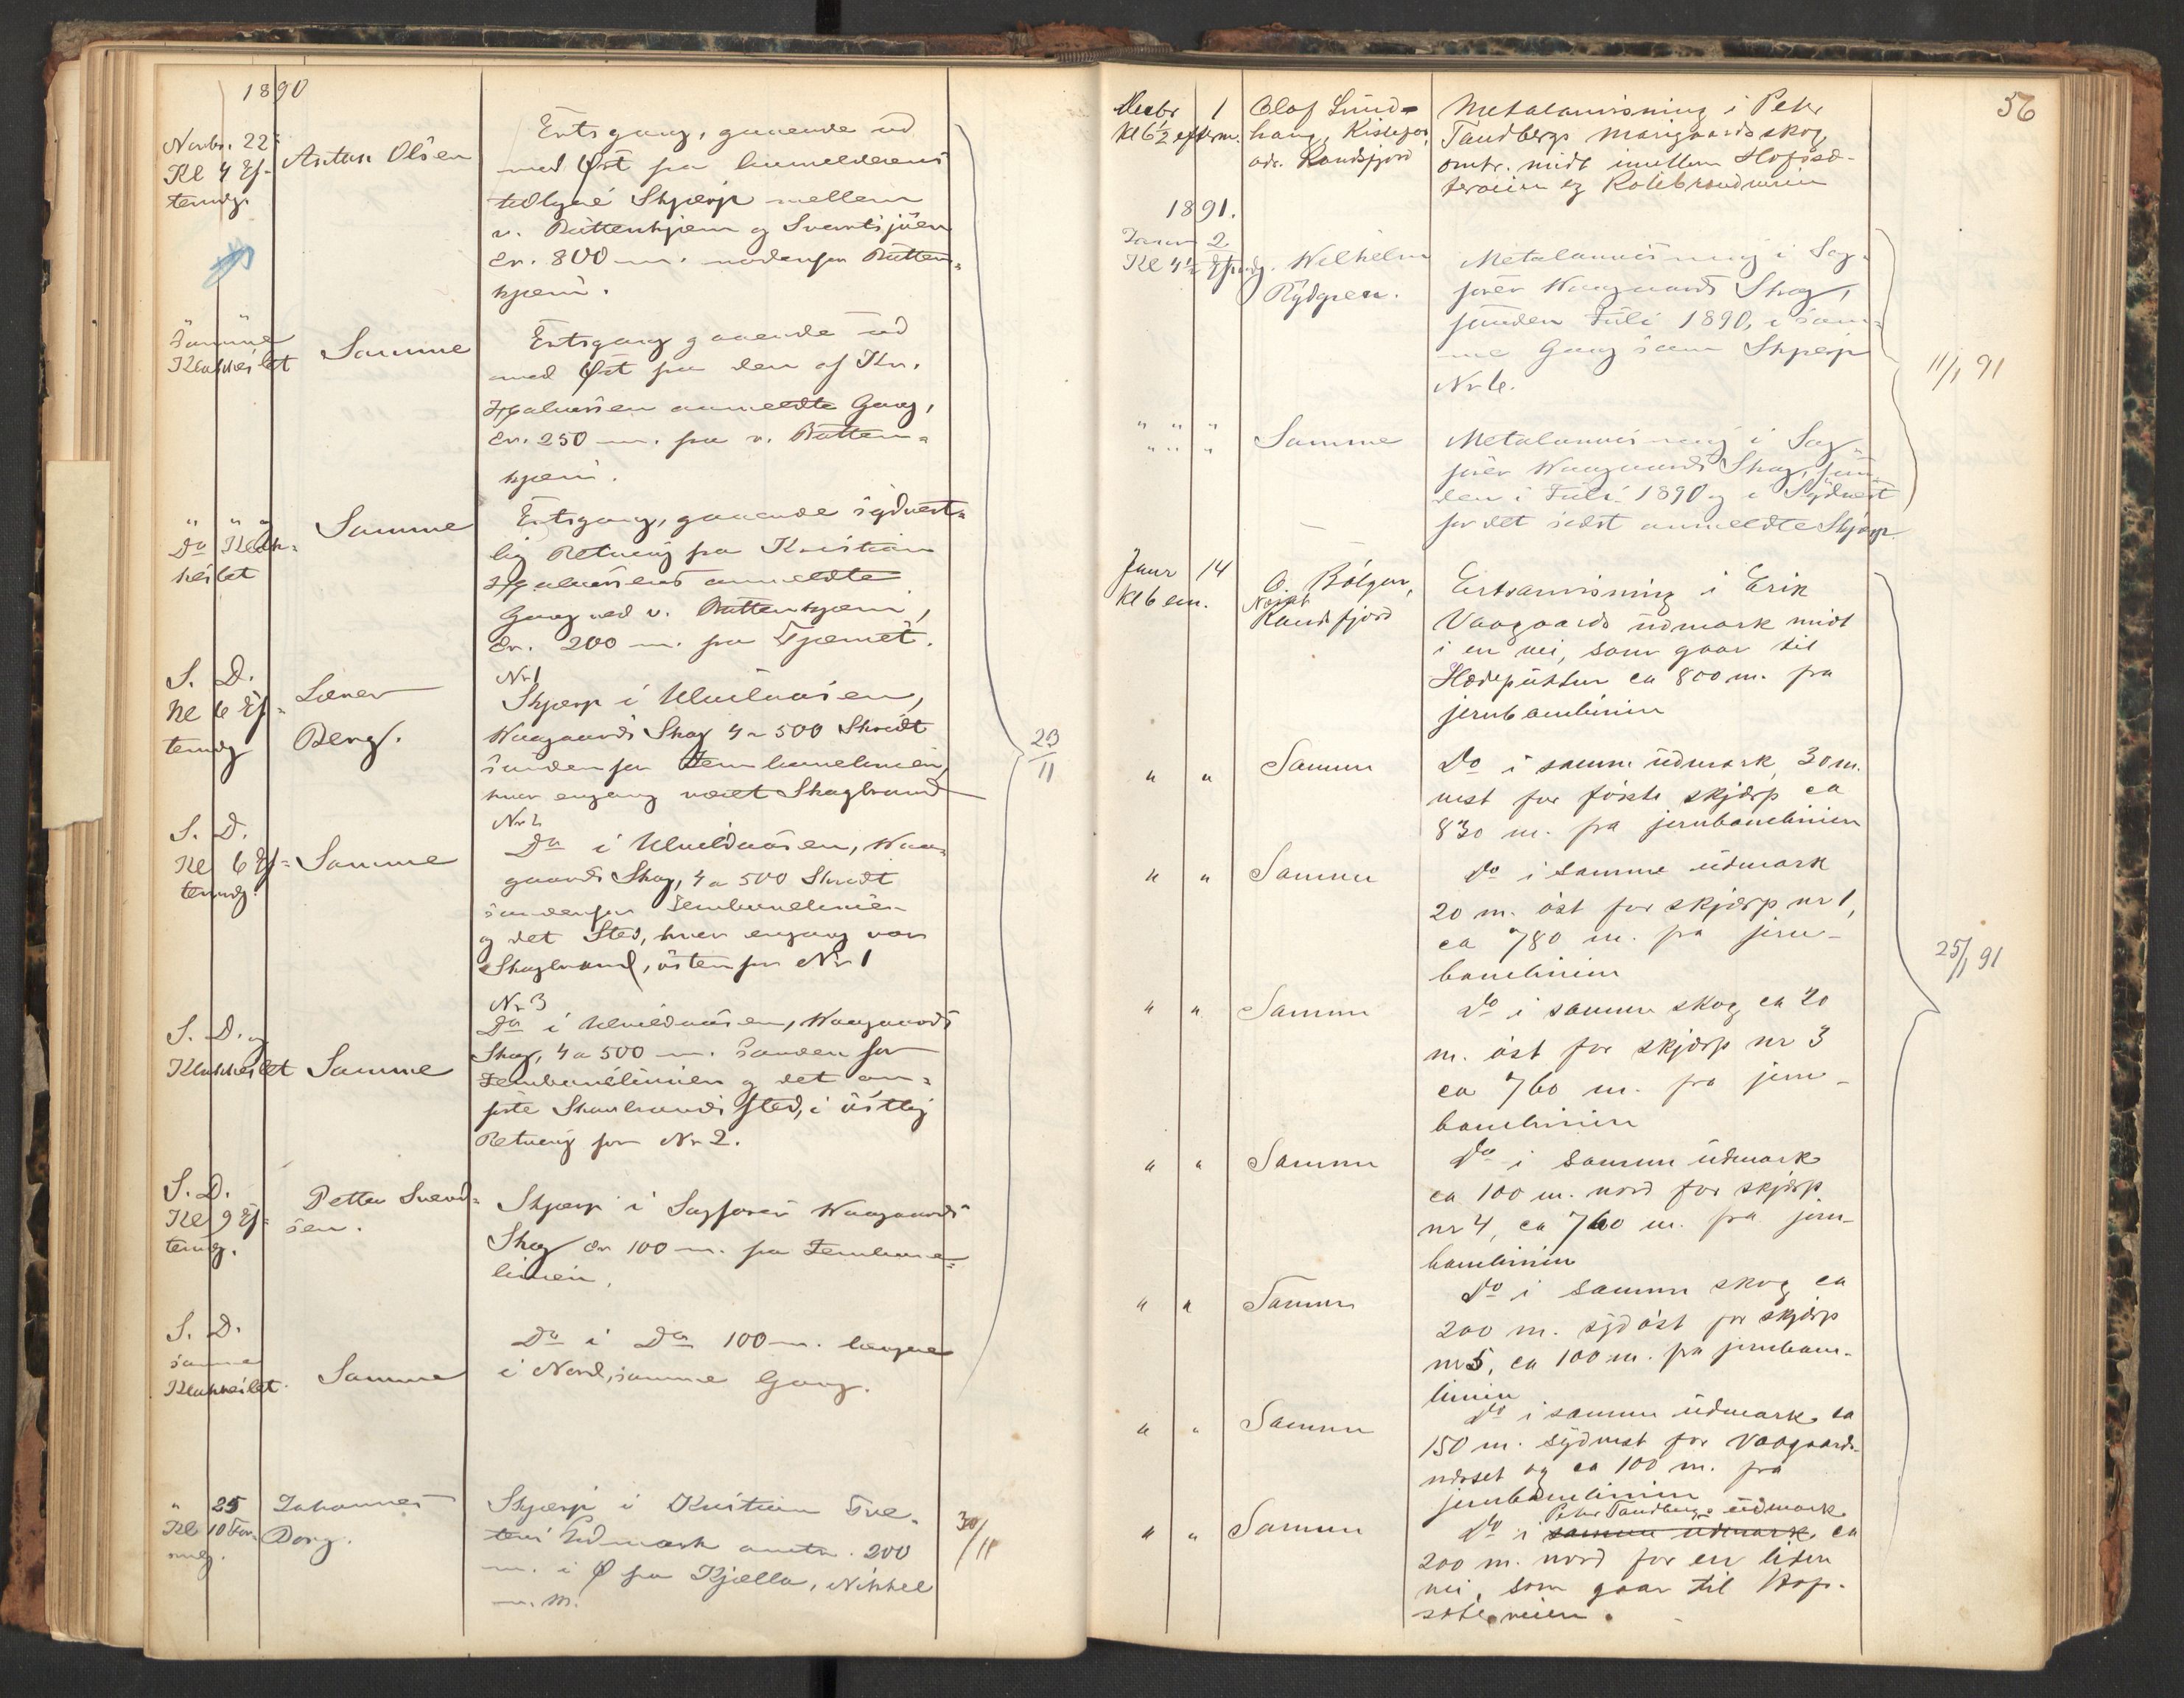 1890
Novbr. 22
Kl 4 Ef-
termdg.
Anton Olsen
Ertsgang, gaaende ud
med Øst fra Anmelderens
tidligere Skjærp mellem
v. Buttentjern og Svartsjøen
Ca. 800 m. nordenfor Butten-
tjern.
Samme
Klokkeslet
Samme
Ertsgang gaaende ud
med Øst fra den af Kr.
Hgalmsen anmeldte Gang,
Ca. 250 m. fra v. Butten-
tjern.
" " og
Do Klok-
keslet
Samme
Ertsgang, gaaende sydvest-
lig Retning fra Kristian
anmeldte
Gang ved v. Buttentjern,
Ca. 200 m. fra Tjernet.
S. D.
Kl 6 Ef-
termdg
Berg.
Nr 1
Skjærp i
Waagaards Skog 4 a 500 Skridt
søndenfor Jernbanelinien,
hvor engang været Skogbrand
S. D.
Kl 6 Ef-
termdg.
Samme
Nr 2
Do i Waa-
gaards Skog, 4 a 500 Skridt
søndenfor Jernbanelinien
og det Sted, hvor engang var
Skogbrand, østenfor Nr 1
S. D. og
Klokkeslet
Samme
Nr 3
Do i Waagaards
Skog, 4 a 500 m. sønden for
Jernbanelinien og det an-
førte Skovbrands sted, i østlig
Retning for Nr 2.
S. D.
Kl 9 Ef-
termdg.
Petter Svend-
sen.
Skjærp i Sagfører Waagaards
Skog ca 100 m. fra Jernbane-
linien.
S. D.
samme
Klokkeslet.
Samme
Do i Do 100 m. længere
i Nord, samme Gang.
23
11
" 25
Kl 10 For-
mdg.
Johannes
Borg.
Skjærp i Kristian Tve-
tens Udmark omtr. 200
m. i Ø fra Kjella, Nikkel
m. m.
30/11
56
Decbr 1
Kl 6½ efterm.
Olof Lind-
haug,
adr. Randsfjord
Metalanvisning i Peter
Tandbergs skog,
omtr. midt imellem Hofsæ-
terveien og
1891.
Januar 2
Kl 4½ Eftmdg.
Wilhelm
Rydgren.
Metalanvisning i Sag-
fører Waagaards Skog,
funden Juli 1890, i sam-
me Gang som Skjærp
Nr 6.
" " "
" " "
Samme
Metalanvisning i Sag-
fører Waagaards Skog, fun-
den i Juli 1890 og i Sydvest
for det sidst anmeldte Skjærp.
11/1 91
Januar 14
Kl 6 em.
O. Bölgen,
Næs pr
Randsfjord
Ertsanvisning i Erik
Vaagaards udmark midt
i en vei, som gaar til
ca 800 m. fra
jernbanelinien
" "
Samme
Do i samme udmark, 30 m.
vest for første skjærp ca
830 m. fra jernbanelinien
" "
Samme
Do i samme udmark
20 m. øst for skjærp nr 1,
ca 780 m. fra jern-
banelinien
" "
Samme
Do i samme skog ca 20
m. øst for skjærp nr 3
ca 760 m. fra jern-
banelinien
" "
Samme
Do i samme udmark
ca 100 m. nord for skjærp
nr 4, ca 760 m. fra jern-
banelinien
" "
Samme
Do i samme skog ca
200 m. sydøst for skjærp
nr 5, ca 100 m. fra jernbane-
linien
" "
Samme
Do i samme udmark ca
150 m. sydvest for Vaagaards-
og ca 100 m. fra
jernbanelinien
" "
Samme
Peter Tandbergs udmark
Do i samme udmark, ca
200 m. nord for en liden
vei, som gaar til Hof-
sæterveien.
25/1 91